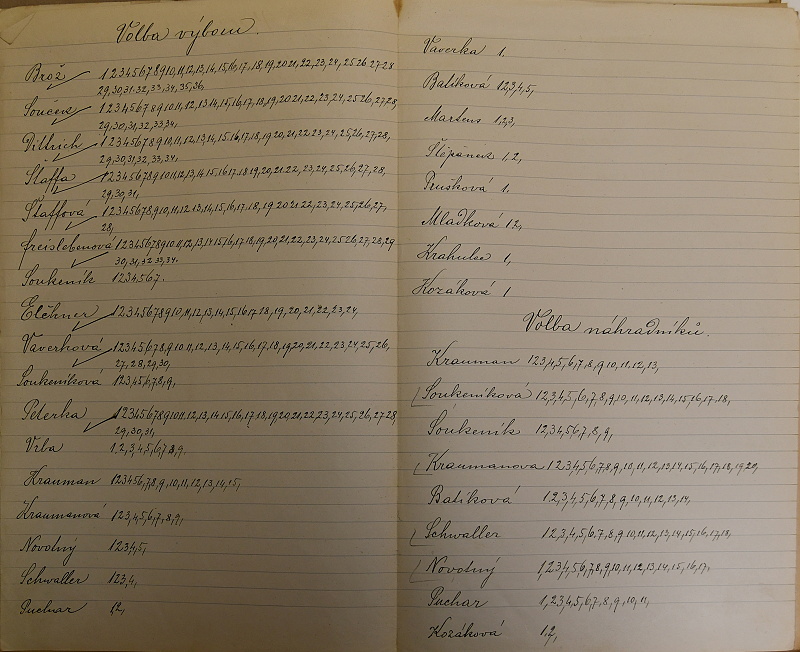 Volba výboru.
Brož 1 2 3 4 5 6 7 8 9 10, 11, 12, 13, 14, 15, 16, 17, 18, 19, 20 21, 22, 23, 24, 25 26 27 28
29, 30, 31, 32, 33, 34, 35, 36,
Souček 1 2 3 4 5 6 7 8 9 10 11, 12, 13 14 15, 16, 17, 18, 19, 20 21 22, 23, 24, 25 26, 27 28,
29, 30, 31, 32, 33 34,
Dittrich 1 2 3 4 5 6 7 8 9 10 11, 12, 13, 14, 15, 16, 17, 18, 19, 20, 21, 22 23, 24, 25, 26, 27, 28,
29, 30, 31, 32, 33, 34,
Štaffa 1 2 3 4 5 6 7 8 9 10 11, 12, 13, 14, 15 16 17 18, 19, 20, 21, 22, 23, 24, 25, 26, 27, 28,
29, 30, 31,
Štaffová 1 2 3 4 5 6 7 8 9, 10, 11, 12, 13, 14, 15, 16, 17, 18, 19, 20 21 22, 23, 24, 25, 26, 27,
28,
Freislebenová 1 2 3 4 5 6 7 8 9 10, 11, 12, 13, 14 15 16, 17, 18, 19, 20, 21, 22, 23, 24 25 26, 27, 28, 29
30, 31, 32 33, 34.
Soukeník 1 2 3 4 5 6 7.
Elchner 1 2 3 4 5 6 7 8 9 10 11, 12, 13, 14, 15, 16, 17 18, 19, 20, 21, 22, 23, 24,
Vaverková 1 2 3 4 5 6 7 8 9, 10, 11, 12, 13, 14, 15, 16, 17, 18, 19, 20, 21, 22, 23, 24, 25, 26,
27, 28, 29, 30,
Soukeníková 1 2 3 4 5 6, 7, 8, 9,
Peterka 1 2 3 4 5 6 7 8 9 10 11, 12, 13, 14, 15, 16, 17, 18, 19, 20, 21, 22, 23, 24, 25, 26, 27 28
29, 30, 31,
Vrba 1, 2, 3, 4, 5, 6, 7, 8, 9.
Krauman 1 2 3 4 5 6, 7, 8, 9, 10, 11, 12, 13, 14, 15,
Kraumanová 1 2 3, 4, 5, 6, 7, 8, 9,
Novotný 1 2 3 4, 5,
Schwaller 1 2 3, 4,
Puchar 1, 2,
Vaverka 1.
Balíková 1 2, 3, 4, 5,
Martens 1, 2, 3,
Štěpánek 1, 2,
Prušková 1,
Mládková 1 2,
Krahulec 1,
Kozáková 1
Volba náhradníků.
Krauman 1 2 3, 4, 5, 6, 7, 8, 9, 10, 11, 12, 13,
Soukeníková 1 2, 3, 4, 5, 6, 7, 8, 9, 10, 11, 12, 13, 14, 15, 16, 17, 18,
Soukeník 1 2, 3, 4, 5, 6, 7, 8, 9,
Kraumanova 1 2 3, 4, 5, 6, 7, 8, 9, 10, 11, 12, 13, 14, 15, 16, 17, 18, 19, 20,
Balíková 1, 2, 3, 4, 5, 6, 7, 8, 9, 10, 11, 12, 13, 14,
Schwaller 1 2, 3, 4, 5, 6, 7, 8, 9 10, 11, 12, 13, 14, 15, 16, 17, 18,
Novotný 1, 2 3, 4, 5, 6, 7, 8, 9, 10, 11, 12, 13, 14, 15, 16, 17,
Puchar 1, 2, 3, 4, 5, 6, 7, 8, 9, 10, 11,
Kozáková 1, 2,